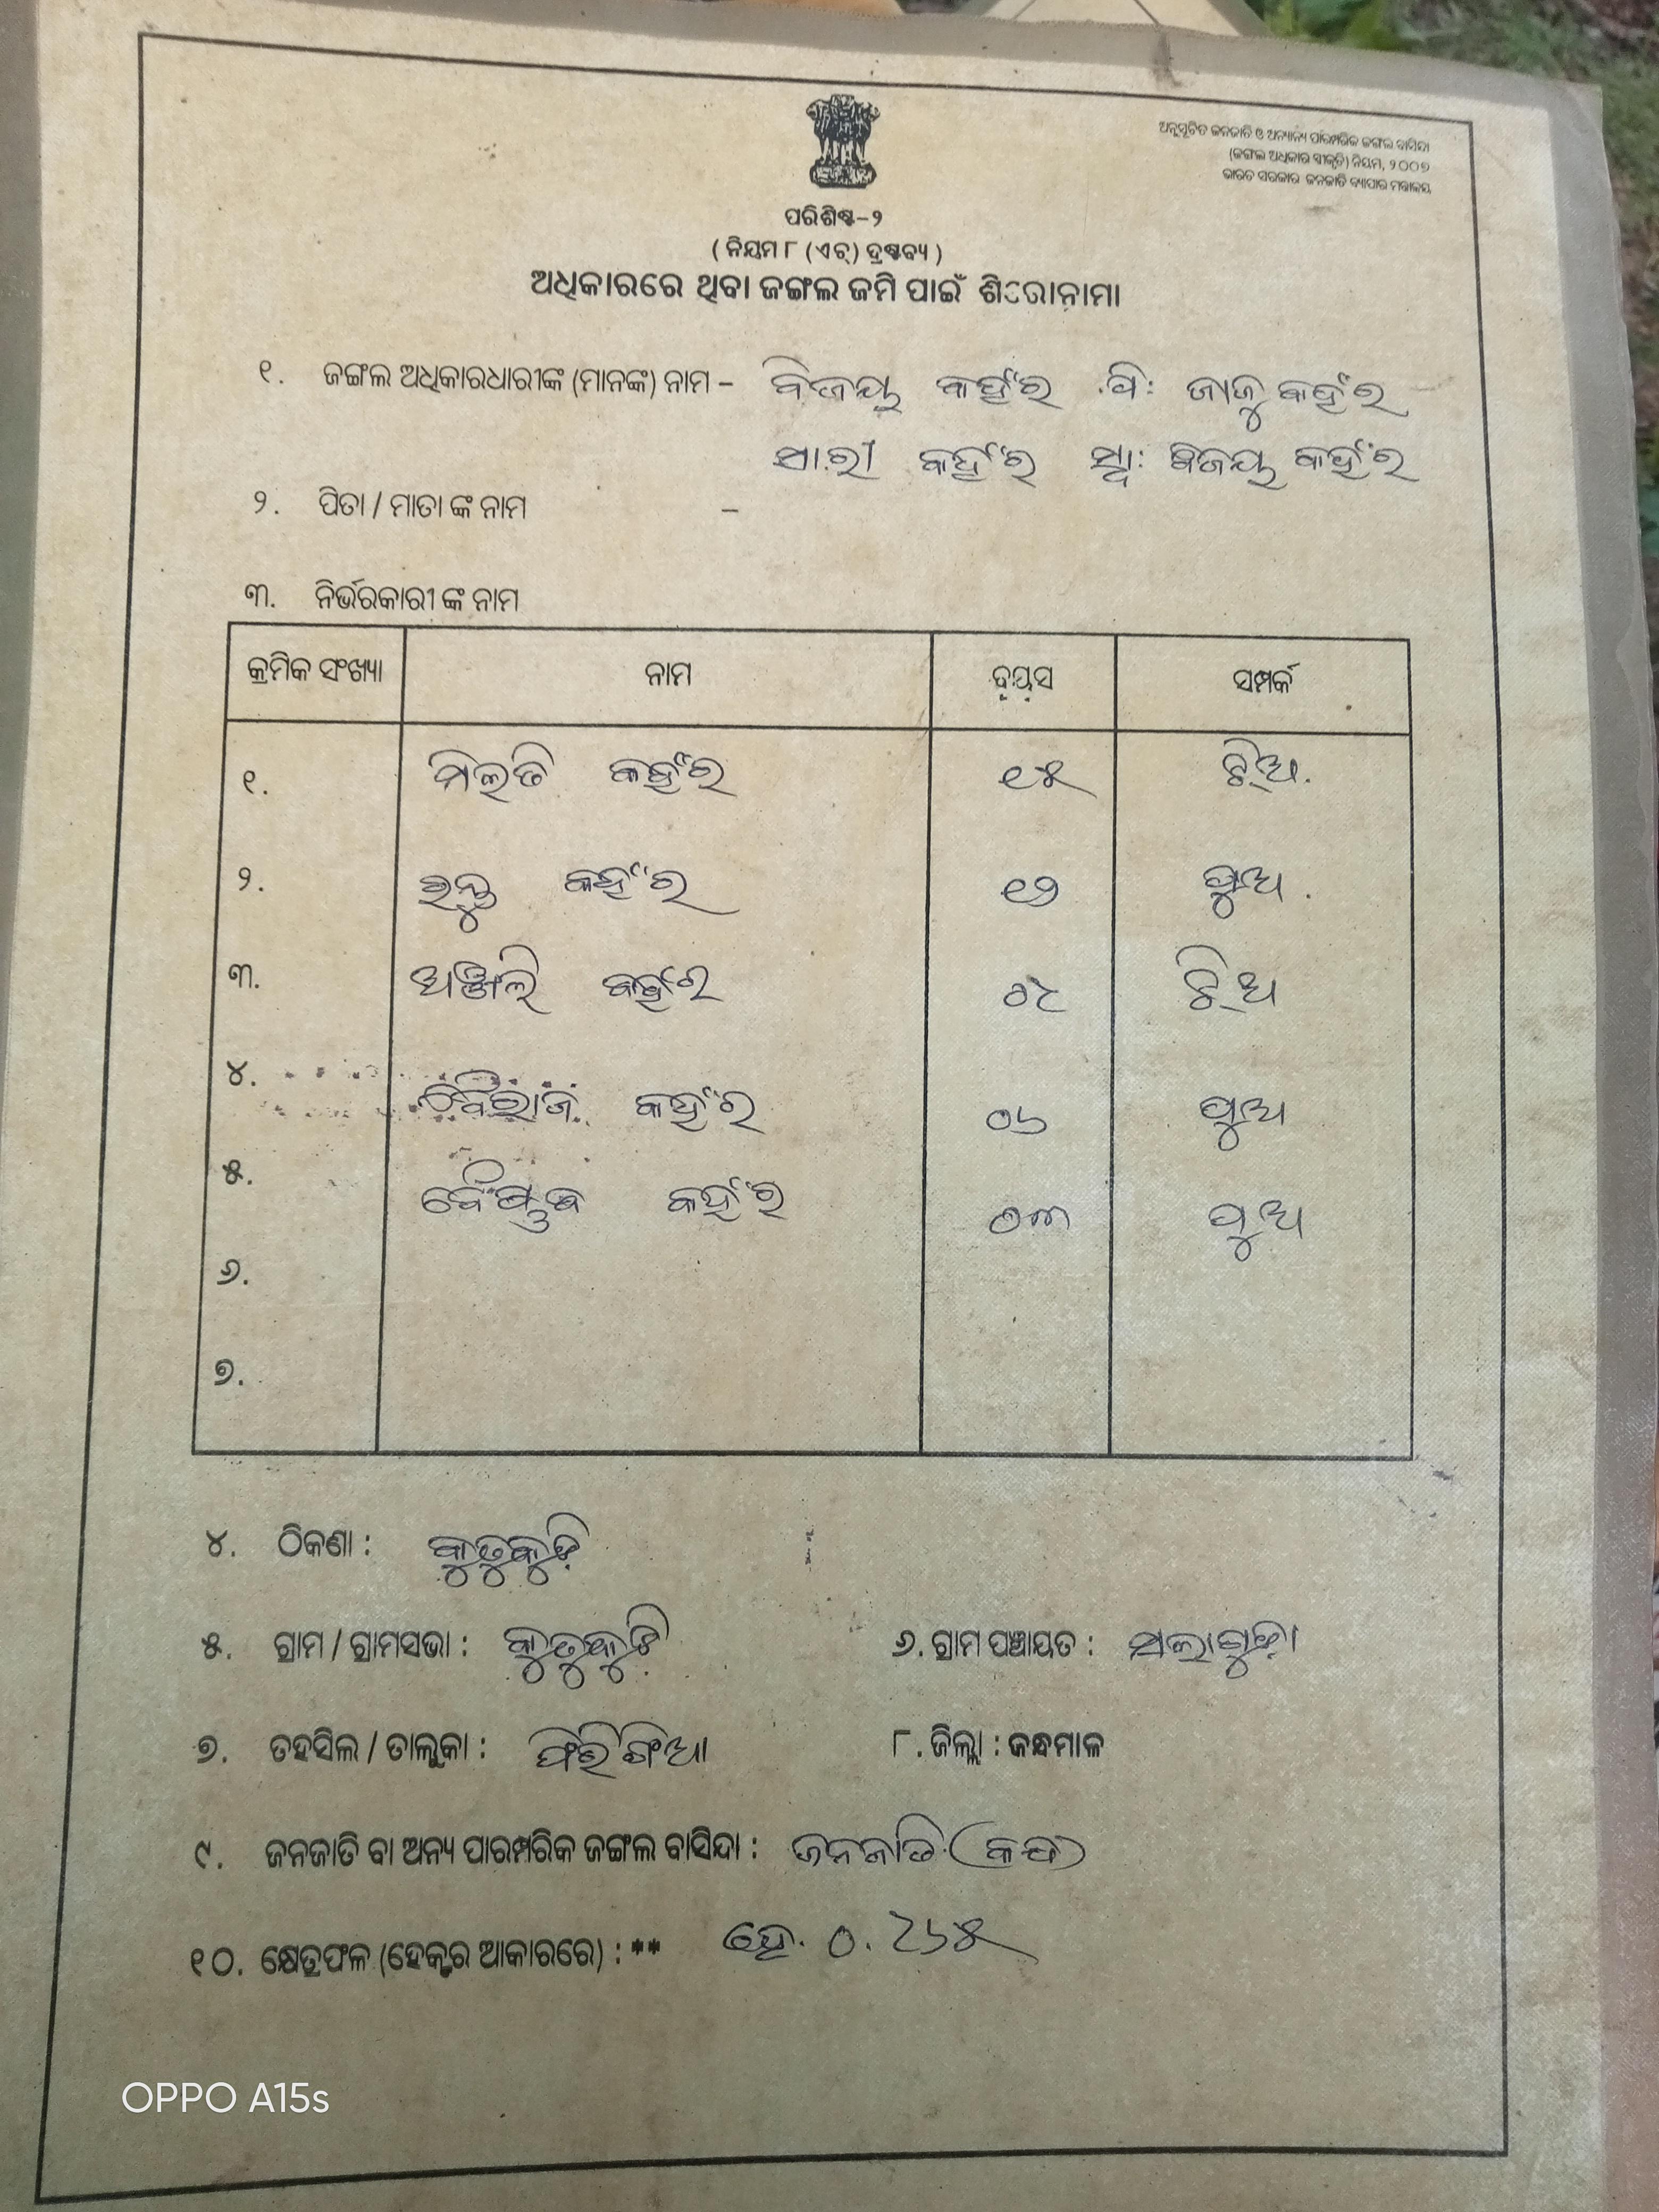 ଅନୁସୂଚିତ ଜନଜାତି ଓ ଅନ୍ୟାନ୍ୟ ପାରମ୍ପରିକ ଜଙ୍ଗଲ ବାସିନ୍ଦା
(ଜଙ୍ଗଲ ଅଧିକାର ସ୍ୱୀକୃତି) ନିୟମ, ୨୦୦୭
ଭାରତ ସରକାର ଜନଜାତି ବ୍ୟାପାର ମନ୍ତ୍ରାଳୟ
ପରିଶିଷ୍ଟ-୨
( ନିୟମ ୮ (ଏଚ୍) ଦ୍ରଷ୍ଟବ୍ୟ )
ଅଧିକାରରେ ଥିବା ଜଙ୍ଗଲ ଜମି ପାଇଁ ଶିରୋନାମା
୧. ଜଙ୍ଗଲ ଅଧିକାରଧାରୀଙ୍କ (ମାନଙ୍କ) ନାମ – ବିଜୟ କହଁର ପି: ଜାଜୁ କହଁର
ସାରୀ କହଁର ସ୍ୱା: ବିଜୟ କହଁର
୨. ପିତା / ମାତା ଙ୍କ ନାମ –
୩. ନିର୍ଭରକାରୀ ଙ୍କ ନାମ
କ୍ରମିକ ସଂଖ୍ୟା ନାମ ବୟସ ସମ୍ପର୍କ
୧. ମିଲତି କହଁର ୧୫ ଝିଅ.
୨. ରନ୍ତୁ କହଁର ୧୨ ପୁଅ.
୩. ଅଞ୍ଜଲି କହଁର ୦୯ ଝିଅ
୪. ବୈରାଜ କହଁର ୦୬ ପୁଅ
୫. ବୈଷ୍ଣବ କହଁର ୦୩ ପୁଅ
୬.
୭.
୪. ଠିକଣା : କୁତୁକୁଢ଼ି
୫. ଗ୍ରାମ / ଗ୍ରାମସଭା : କୁତୁକୁଢ଼ି ୬. ଗ୍ରାମ ପଞ୍ଚାୟତ :
୭. ତହସିଲ / ତାଲୁକା : ଫିରିଙ୍ଗିଆ ୮. ଜିଲ୍ଲା : କନ୍ଧମାଳ
୯. ଜନଜାତି ବା ଅନ୍ୟ ପାରମ୍ପରିକ ଜଙ୍ଗଲ ବାସିନ୍ଦା : ଜନଜାତି (କନ୍ଧ)
୧୦. କ୍ଷେତ୍ରଫଳ (ହେକ୍ଟର ଆକାରରେ) : ** ହେ. ୦.୨୬୫
OPPO A15s